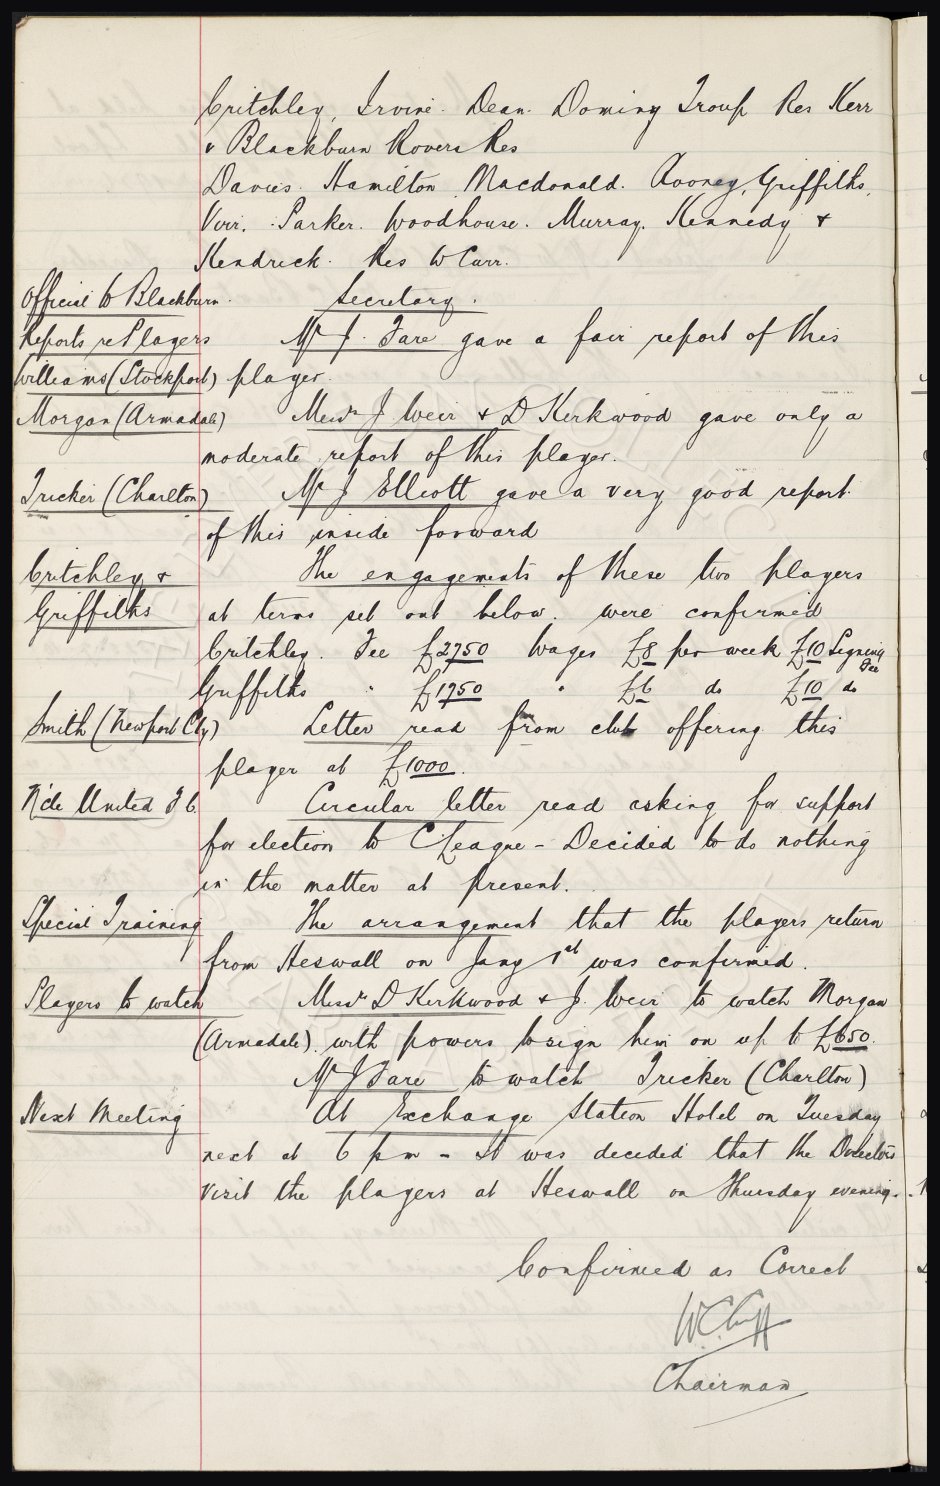 Critchley, Irvine. Dean. Dominy Troup Res Kerr
v Blackburn Rovers Res
Davies. Hamilton Macdonald. Rooney, Griffiths,
Virr. Parker. Woodhouse. Murray. Kennedy &
Kendrick. Res W Curr.
Official to Blackburn. Secretary.
Reports re Players Mr J. Fare gave a fair report of this
Williams (Stockport) player.
Morgan (Armadale) Messrs J Weir & D Kirkwood gave only a
moderate report of this player.
Tricker (Charlton) Mr J Elliott gave a very good report
of this inside forward
Critchley & The engagements of these two players
Griffiths at terms set out below. were confirmed
Critchley. Fee £2750 Wages £8 per week £10 Signing Fee
Griffiths " £1750 " £6 do £10 do
Smith (Newport Cty) Letter read from club offering this
player at £1000.
N'cle United F C. Circular letter read asking for support
for election to C. League - Decided to do nothing
in the matter at present.
Special Training The arrangement that the players return
from Heswall on Jany 1st was confirmed.
Players to watch Messrs D Kirkwood & J. Weir to watch Morgan
(Armadale). with powers to sign him on up to £650.
Mr J Fare to watch Tricker (Charlton)
Next Meeting At Exchange Station Hotel on Tuesday
next at 6 pm - It was decided that the Directors
visit the players at Heswall on Thursday evening.
Confirmed as Correct
W.C. Cuff
Chairman